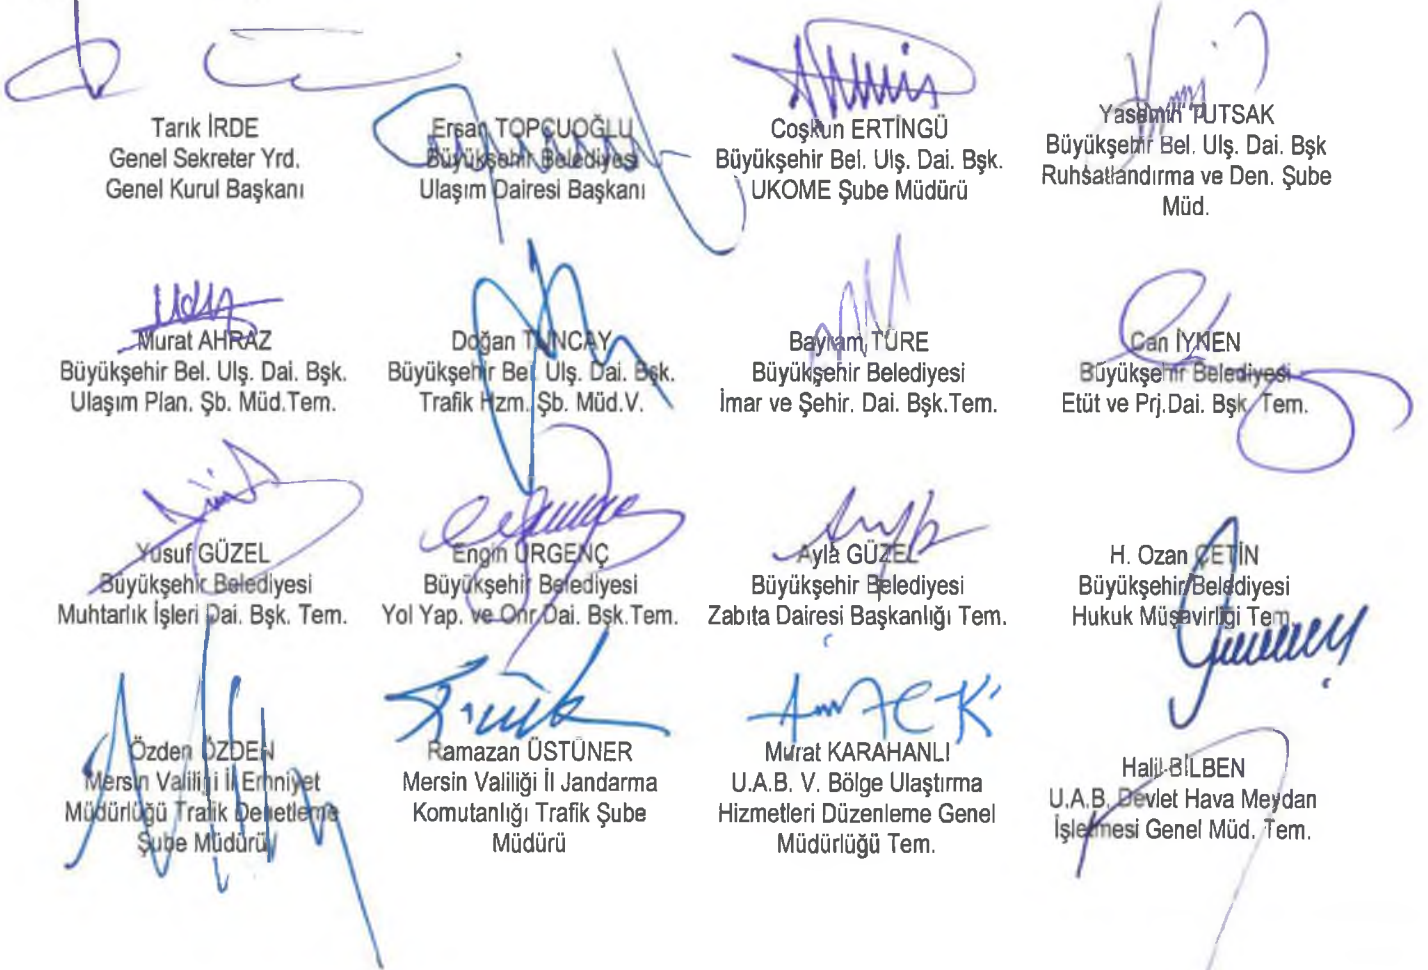 Tarık İRDE
Genel Sekreter Yrd.
Genel Kurul Başkanı
Ersan TOPCUOĞLU
Büyükşehir Belediyesi
Ulaşım Dairesi Başkanı
Coşkun ERTİNGÜ
Büyükşehir Bel. Ulş. Dai. Bşk.
UKOME Şube Müdürü
Yasemin TUTSAK
Büyükşehir Bel. Ulş. Dai. Bşk
Ruhsatlandırma ve Den. Şube
Müd.
Murat AHRAZ
Büyükşehir Bel. Ulş. Dai. Bşk.
Ulaşım Plan. Şb. Müd.Tem.
Doğan TUNCAY
Büyükşehir Bel. Ulş. Dai. Bşk.
Trafik Hzm. Şb. Müd.V.
Bayram TÜRE
Büyükşehir Belediyesi
İmar ve Şehir. Dai. Bşk.Tem.
Can İYNEN
Büyükşehir Belediyesi
Etüt ve Prj.Dai. Bşk. Tem.
Yusuf GÜZEL
Büyükşehir Belediyesi
Muhtarlık İşleri Dai. Bşk. Tem.
Engin ÜRGENÇ
Büyükşehir Belediyesi
Yol Yap. ve Onr Dai. Bşk.Tem.
Ayla GÜZEL
Büyükşehir Belediyesi
Zabıta Dairesi Başkanlığı Tem.
H. Ozan ÇETİN
Büyükşehir Belediyesi
Hukuk Müşavirliği Tem.
Özden ÖZDEN
Mersin Valiliği İl Emniyet
Müdürlüğü Trafik Denetleme
Şube Müdürü
Ramazan ÜSTÜNER
Mersin Valiliği İl Jandarma
Komutanlığı Trafik Şube
Müdürü
Murat KARAHANLI
U.A.B. V. Bölge Ulaştırma
Hizmetleri Düzenleme Genel
Müdürlüğü Tem.
Halil BİLBEN
U.A.B. Devlet Hava Meydan
İşletmesi Genel Müd. Tem.